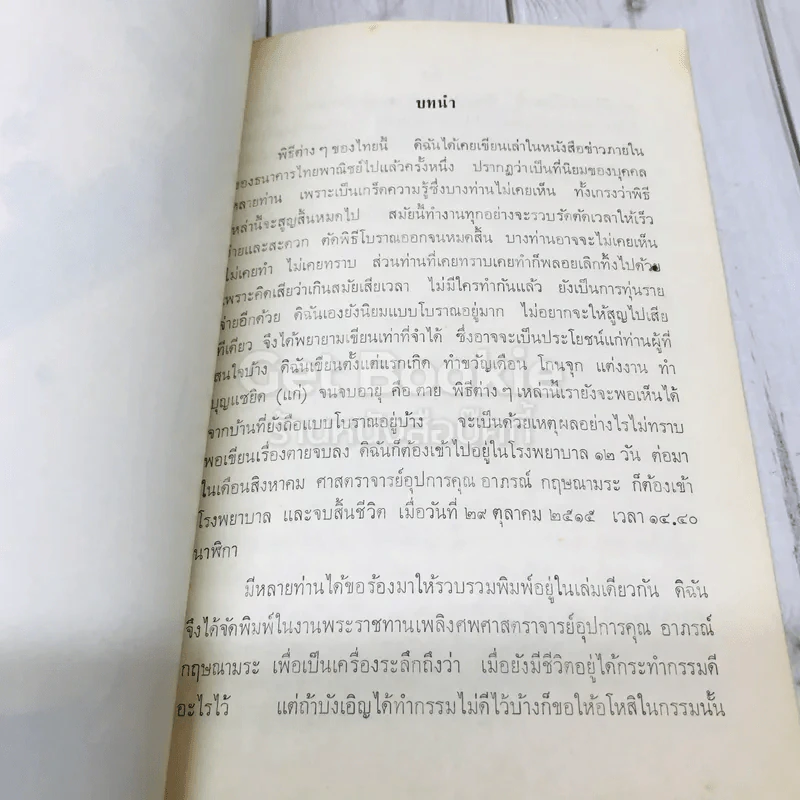 บทนำ
พิธีต่าง ๆ ของไทยนี้ ดิฉันได้เคยเขียนเล่าในหนังสือข่าวภายใน
ของธนาคารไทยพาณิชย์ไปแล้วครั้งหนึ่ง ปรากฏว่าเป็นที่นิยมของบุคคล
หลายท่าน เพราะเป็นเกร็ดความรู้ซึ่งบางท่านไม่เคยเห็น ทั้งเกรงว่าพิธี
เหล่านี้จะสูญสิ้นหมดไป สมัยนี้ทำงานทุกอย่างจะรวบรัดตัดเวลาให้เร็ว
ง่ายและสะดวก ตัดพิธีโบราณออกจนหมดสิ้น บางท่านอาจจะไม่เคยเห็น
ไม่เคยทำ ไม่เคยทราบ ส่วนท่านที่เคยทราบเคยทำก็พลอยเลิกทิ้งไปด้วย
เพราะคิดเสียว่าเกินสมัยเสียเวลา ไม่มีใครทำกันแล้ว ยังเป็นการทุ่นราย
จ่ายอีกด้วย ดิฉันเองยังนิยมแบบโบราณอยู่มาก ไม่อยากจะให้สูญไปเสีย
ทีเดียว จึงได้พยายามเขียนเท่าที่จำได้ ซึ่งอาจจะเป็นประโยชน์แก่ท่านผู้ที่
สนใจบ้าง ดิฉันเขียนตั้งแต่แรกเกิด ทำขวัญเดือน โกนจุก แต่งงาน ทำ
บุญแซยิด (แก่) จนจบอายุ คือ ตาย พิธีต่าง ๆ เหล่านี้เรายังจะพอเห็นได้
จากบ้านที่ยังถือแบบโบราณอยู่บ้าง จะเป็นด้วยเหตุผลอย่างไรไม่ทราบ
พอเขียนเรื่องตายจบลง ดิฉันก็ต้องเข้าไปอยู่ในโรงพยาบาล ๑๒ วัน ต่อมา
ในเดือนสิงหาคม ศาสตราจารย์อุปการคุณ อาภรณ์ กฤษณามระ ก็ต้องเข้า
โรงพยาบาล และจบสิ้นชีวิต เมื่อวันที่ ๒๙ ตุลาคม ๒๕๑๕ เวลา ๑๔.๔๐
นาฬิกา
มีหลายท่านได้ขอร้องมาให้รวบรวมพิมพ์อยู่ในเล่มเดียวกัน ดิฉัน
จึงได้จัดพิมพ์ในงานพระราชทานเพลิงศพศาสตราจารย์อุปการคุณ อาภรณ์
กฤษณามระ เพื่อเป็นเครื่องระลึกถึงว่า เมื่อยังมีชีวิตอยู่ได้กระทำกรรมดี
อะไรไว้ แต่ถ้าบังเอิญได้ทำกรรมไม่ดีไว้บ้างก็ขอให้อโหสิในกรรมนั้น
Get Bookie
ร้านหนังสือบุ๊คกี้